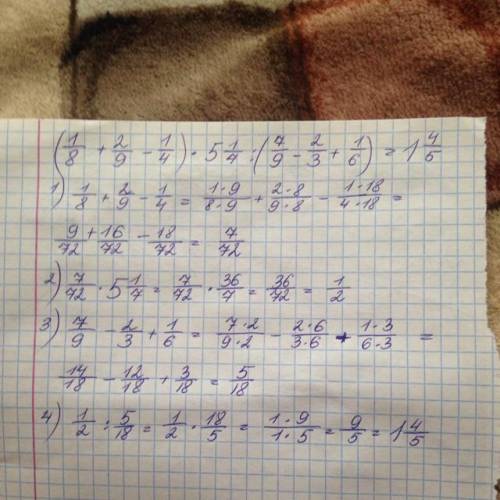 (1/8 + 2/9 - 1/4) · 5 1/4 : (7/9 - 2/3 + 1/6) = 1 4/5
1) 1/8 + 2/9 - 1/4 = 1·9/8·9 + 2·8/9·8 - 1·18/4·18 =
9/72 + 16/72 - 18/72 = 7/72
2) 7/72 · 5 1/7 = 7/72 · 36/7 = 36/72 = 1/2
3) 7/9 - 2/3 + 1/6 = 7·2/9·2 - 2·6/3·6 + 1·3/6·3 =
14/18 - 12/18 + 3/18 = 5/18
4) 1/2 : 5/18 = 1/2 · 18/5 = 1·9/1·5 = 9/5 = 1 4/5